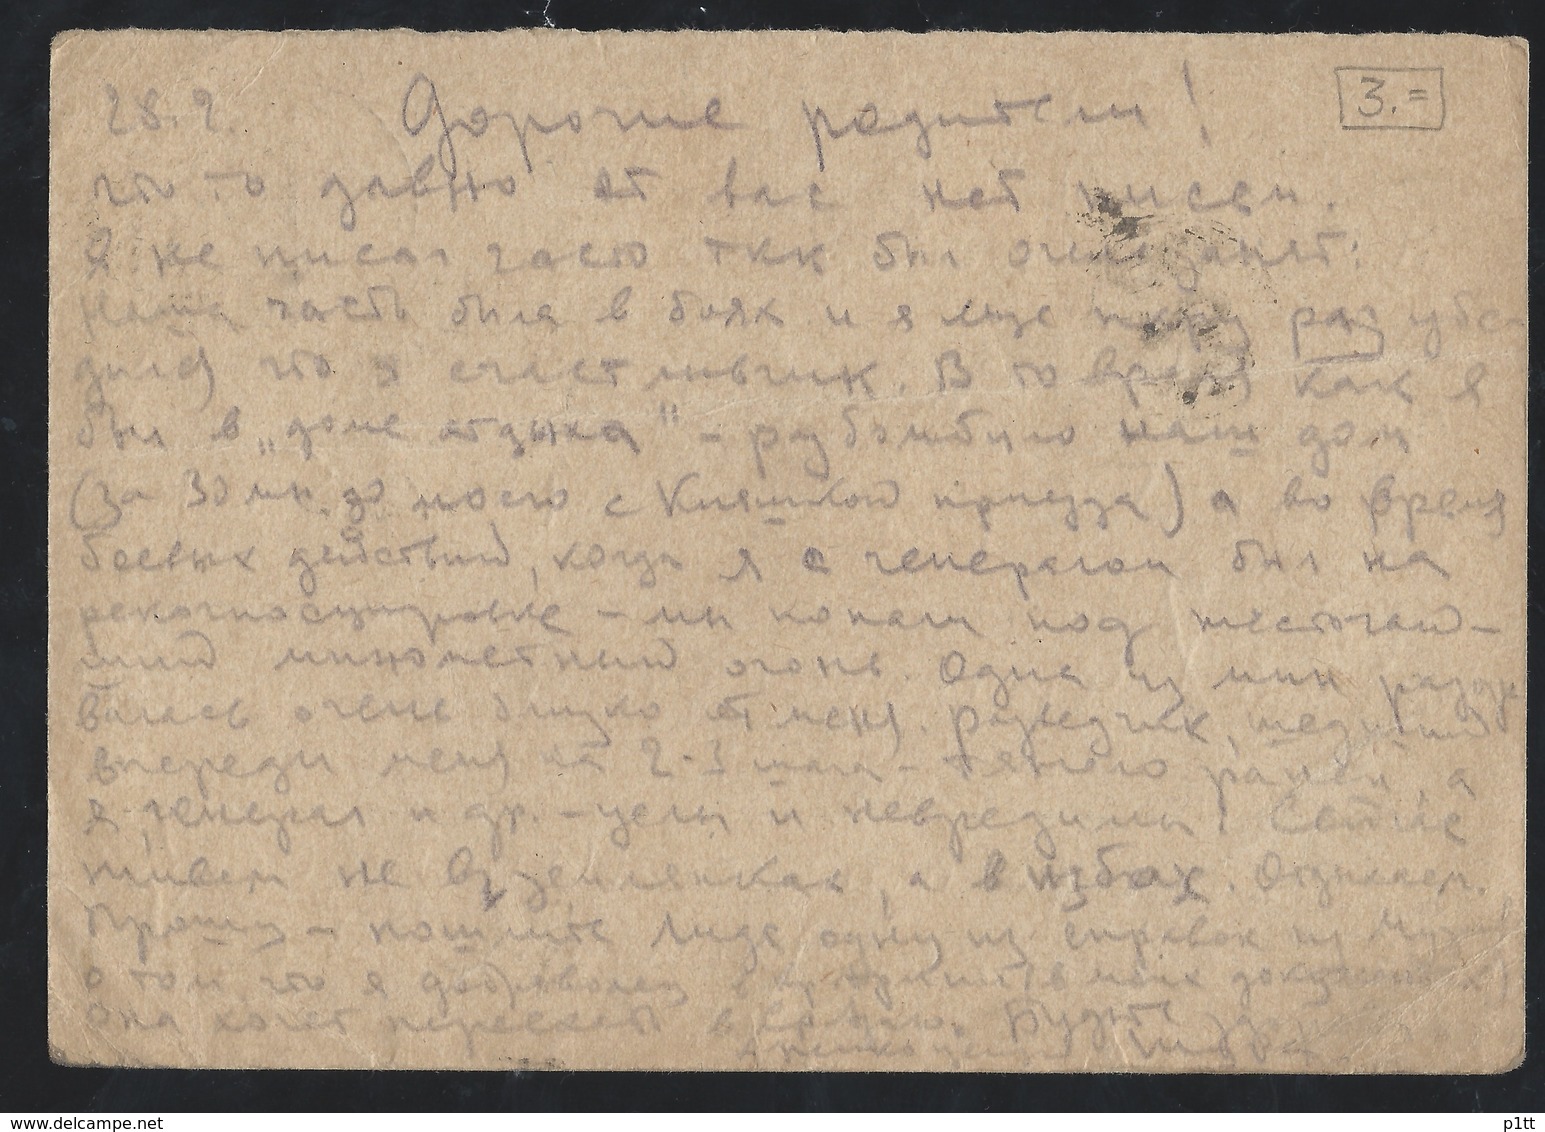 28.2. Дорогие родители! 3.=
что-то давно от вас нет писем.
Я не писал часто ткк был очень занят.
Наша часть была в боях и я еще раз убе
дился что я счастливчик. В то время как я
был в „доме отдыха" – разбомбило наш дом
(за 30 мн. до моего с приезда) а во время
боевых действий, когда я с генералом был на
рекогносцировке – мы попали под жесточай-
ший минометный огонь. Одна из мин разор
валась очень близко от меня. Разведчик, шедший
впереди меня на 2-3 шага – тяжело ранен, а
я, генерал и др. – целы и невредимы! Сейчас
живем не в землянках, а в избах. Отдыхаем.
Прошу – пошлите Лиде одну из справок из
о том что я доброволец (в моих документах)
Она хочет переехать в Будьте
целую